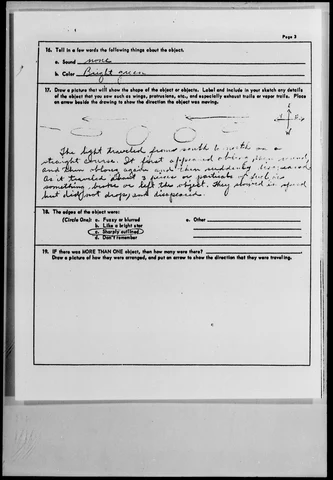 Page 3
16. Tell in a few words the following things about the object.
a. Sound none
b. Color Bright green
17. Draw a picture that will show the shape of the object or objects. Label and include in your sketch any details
of the object that you saw such as wings, protrusions, etc., and especially exhaust trails or vapor trails. Place
an arrow beside the drawing to show the direction the object was moving.
The light traveled from south to north on a
straight course. It first appeared oblong then round,
and then oblong again and then suddenly disappeared.
As it traveled about 3 pieces or particals of
something broke or left the object. They slowed in speed
but did not drop, and disappeared.
18. The edges of the object were:
(Circle One): a. Fuzzy or blurred e. Other
b. Like a bright star
c. Sharply outlined
d. Don't remember
19. IF there was MORE THAN ONE object, then how many were there?
Draw a picture of how they were arranged, and put an arrow to show the direction that they were traveling.